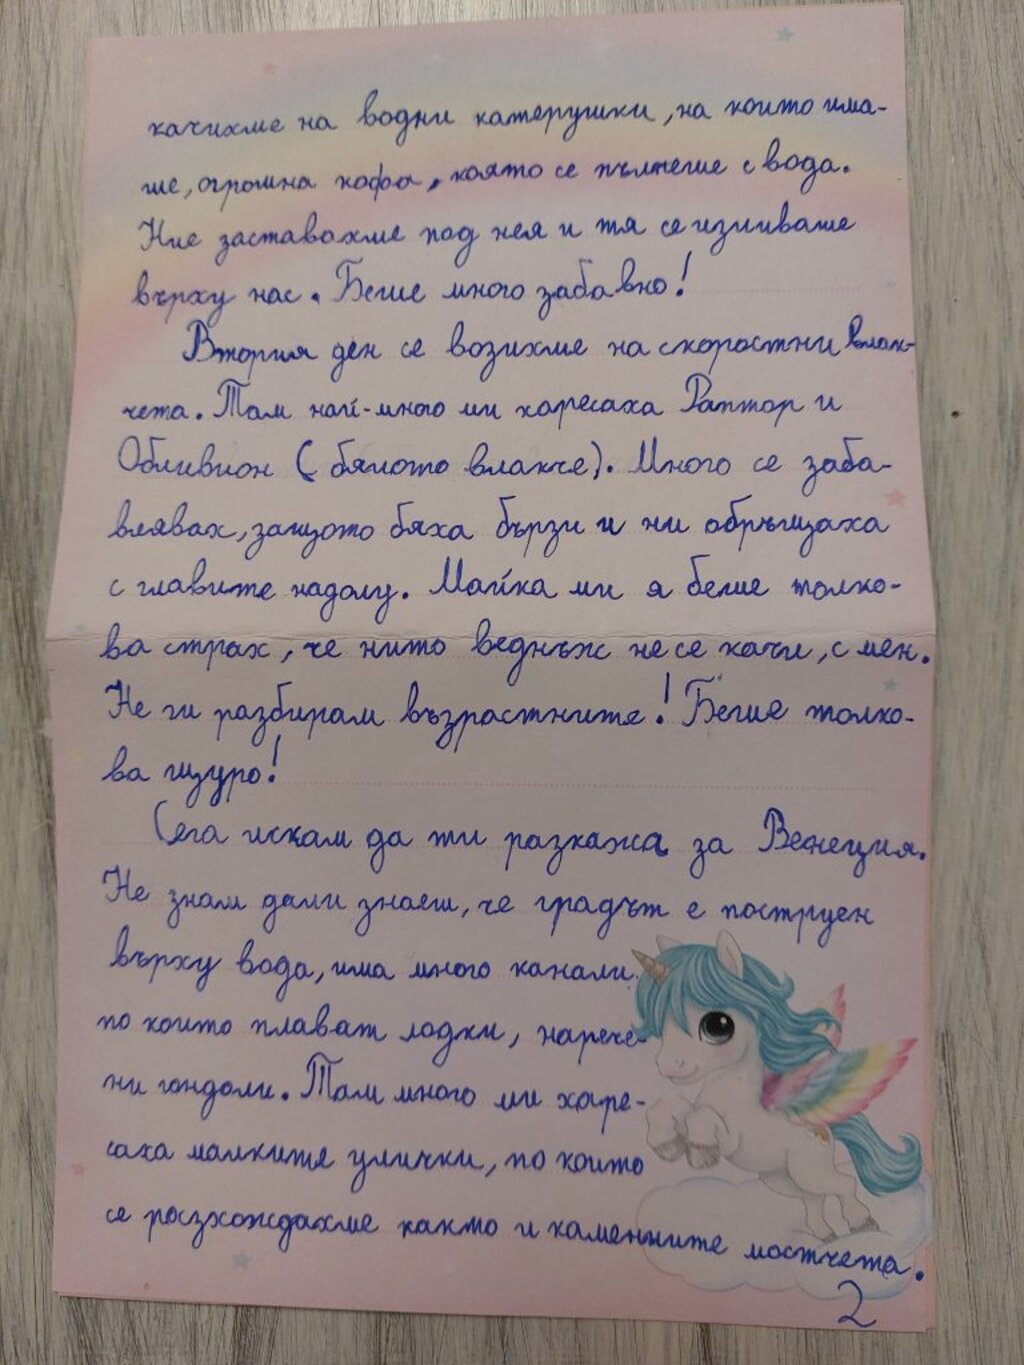 качихме на водни катерушки, на които има-
ше, огромна кофа, която се пълнеше с вода.
Ние заставахме под нея и тя се изливаше
върху нас. Беше много забавно!
Втория ден се возихме на скоростни влак-
чета. Там най-много ми харесаха Раптор и
Обливион (бялото влакче). Много се заба-
влявах, защото бяха бързи и ни обръщаха
с главите надолу. Майка ми я беше толко-
ва страх, че нито веднъж не се качи, с мен.
Не ги разбирам възрастните! Беше толко-
ва щуро!
Сега искам да ти разкажа за Венеция.
Не знам дали знаеш, че градът е построен
върху вода, има много канали
по които плават лодки, нарече-
ни гондоли. Там много ми харе-
саха малките улички, по които
се разхождахме както и каменните мостчета.
2